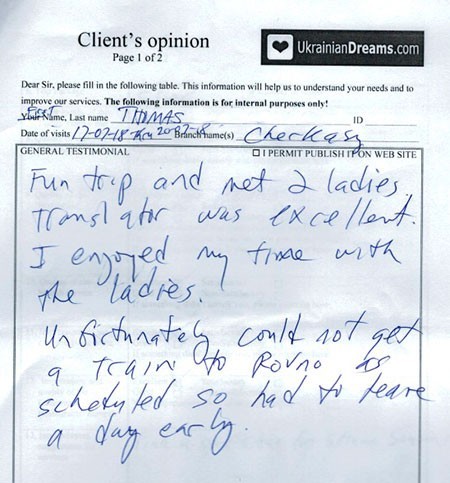 Client's opinion
UkrainianDreams.com
Page 1 of 2
Dear Sir, please fill in the following table. This information will help us to understand your needs and to
improve our services. The following information is for internal purposes only!
First
Your Name, Last name THOMAS ID
Date of visits 17-07-18 Branch name(s) Cherkasy
GENERAL TESTIMONIAL I PERMIT PUBLISH IT ON WEB SITE
Fun trip and met 2 ladies.
Translator was excellent.
I enjoyed my time with
the ladies.
Unfortunately could not get
a train to Rovno as
scheduled so had to leave
a day early.